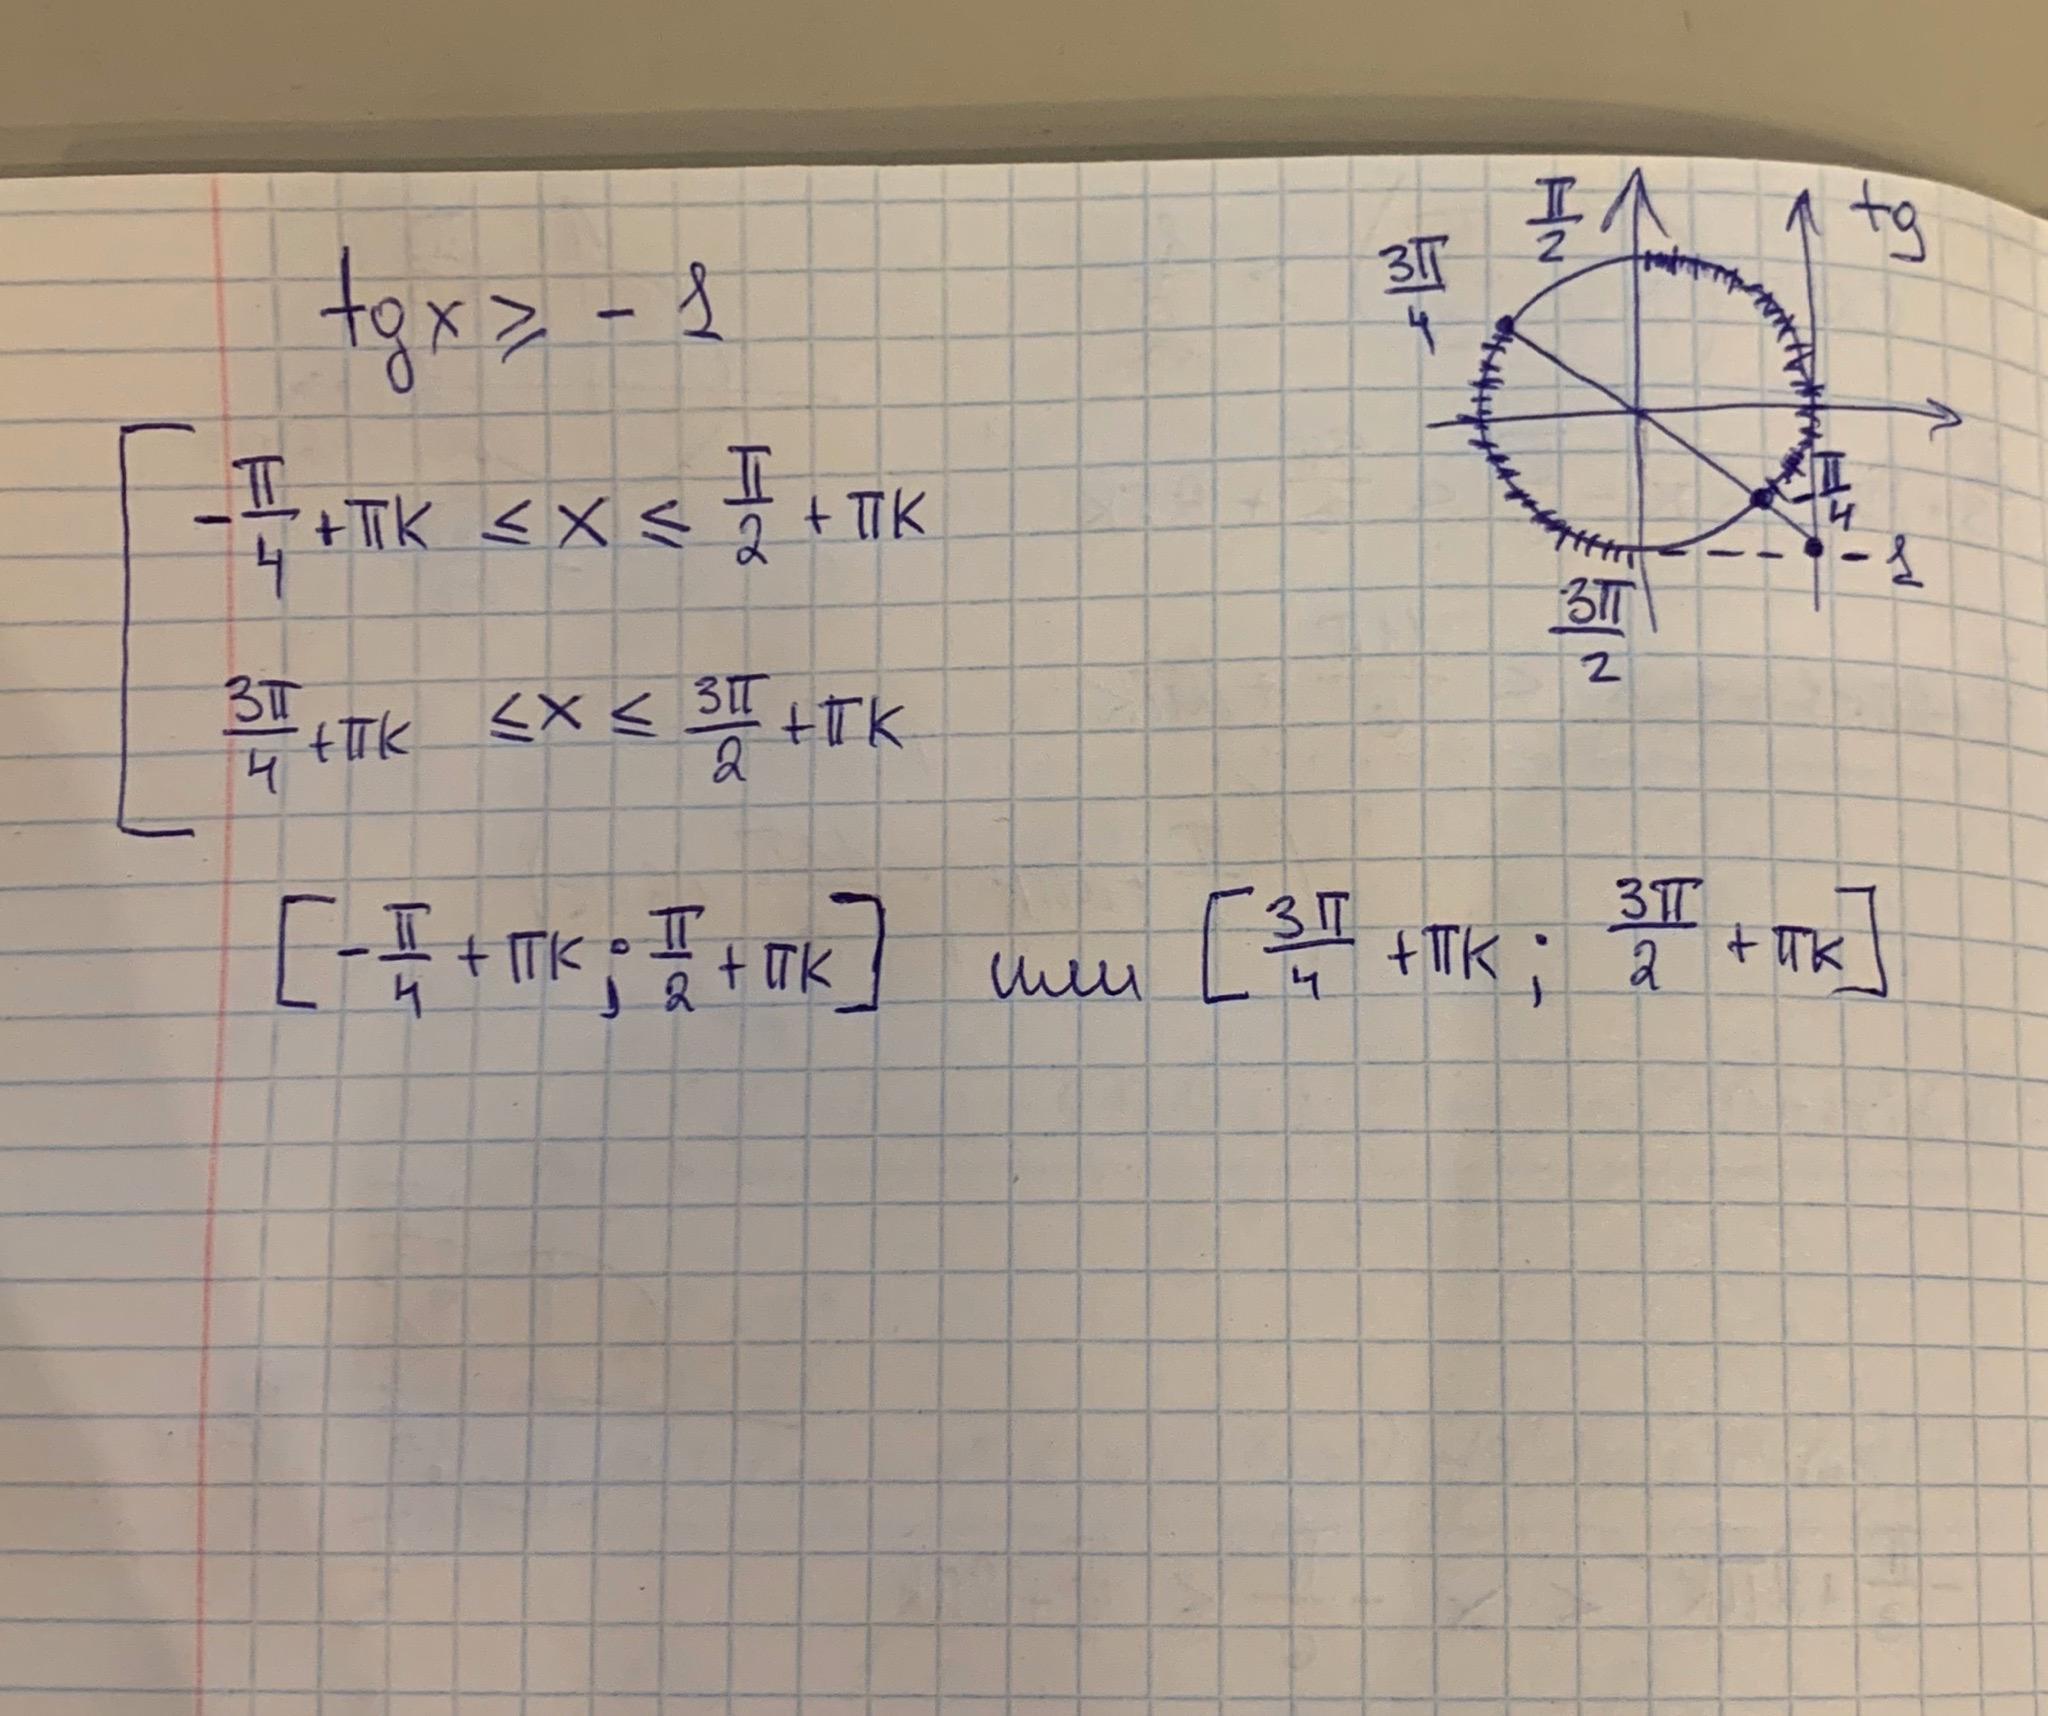 tg x ⩾ - 1
-π/4 + πk ≤ x ≤ π/2 + πk
3π/4 + πk ≤ x ≤ 3π/2 + πk
[-π/4 + πk; π/2 + πk] или [3π/4 + πk; 3π/2 + πk]
π/2
tg
3π/4
-π/4
-1
3π/2